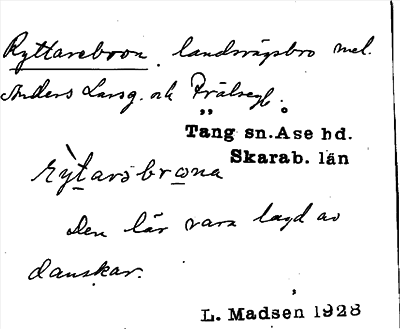 Ryttareboon. landsvägsbro mel.
Anders Larsg. och Frälsegb.
Tang sn. Åse hd.
Skarab. län
rỳtarsbrona
Den lär vara lagd av
danskar.
L. Madsen 1928